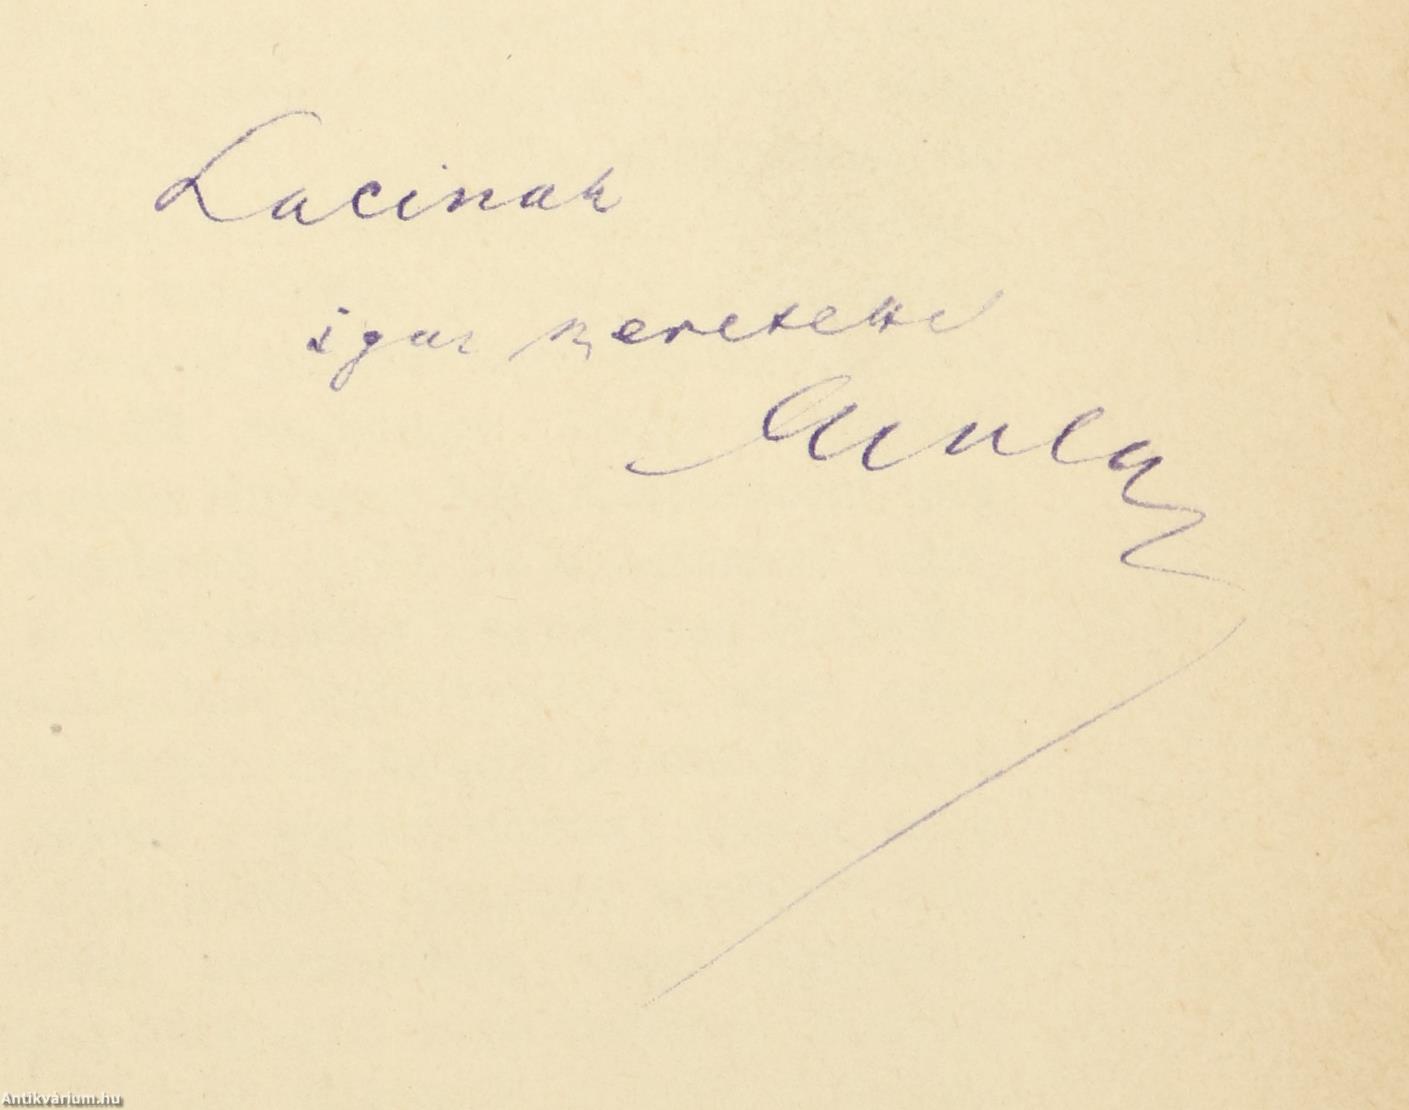 Lacinak
igaz szeretettel
Antikvárium.hu